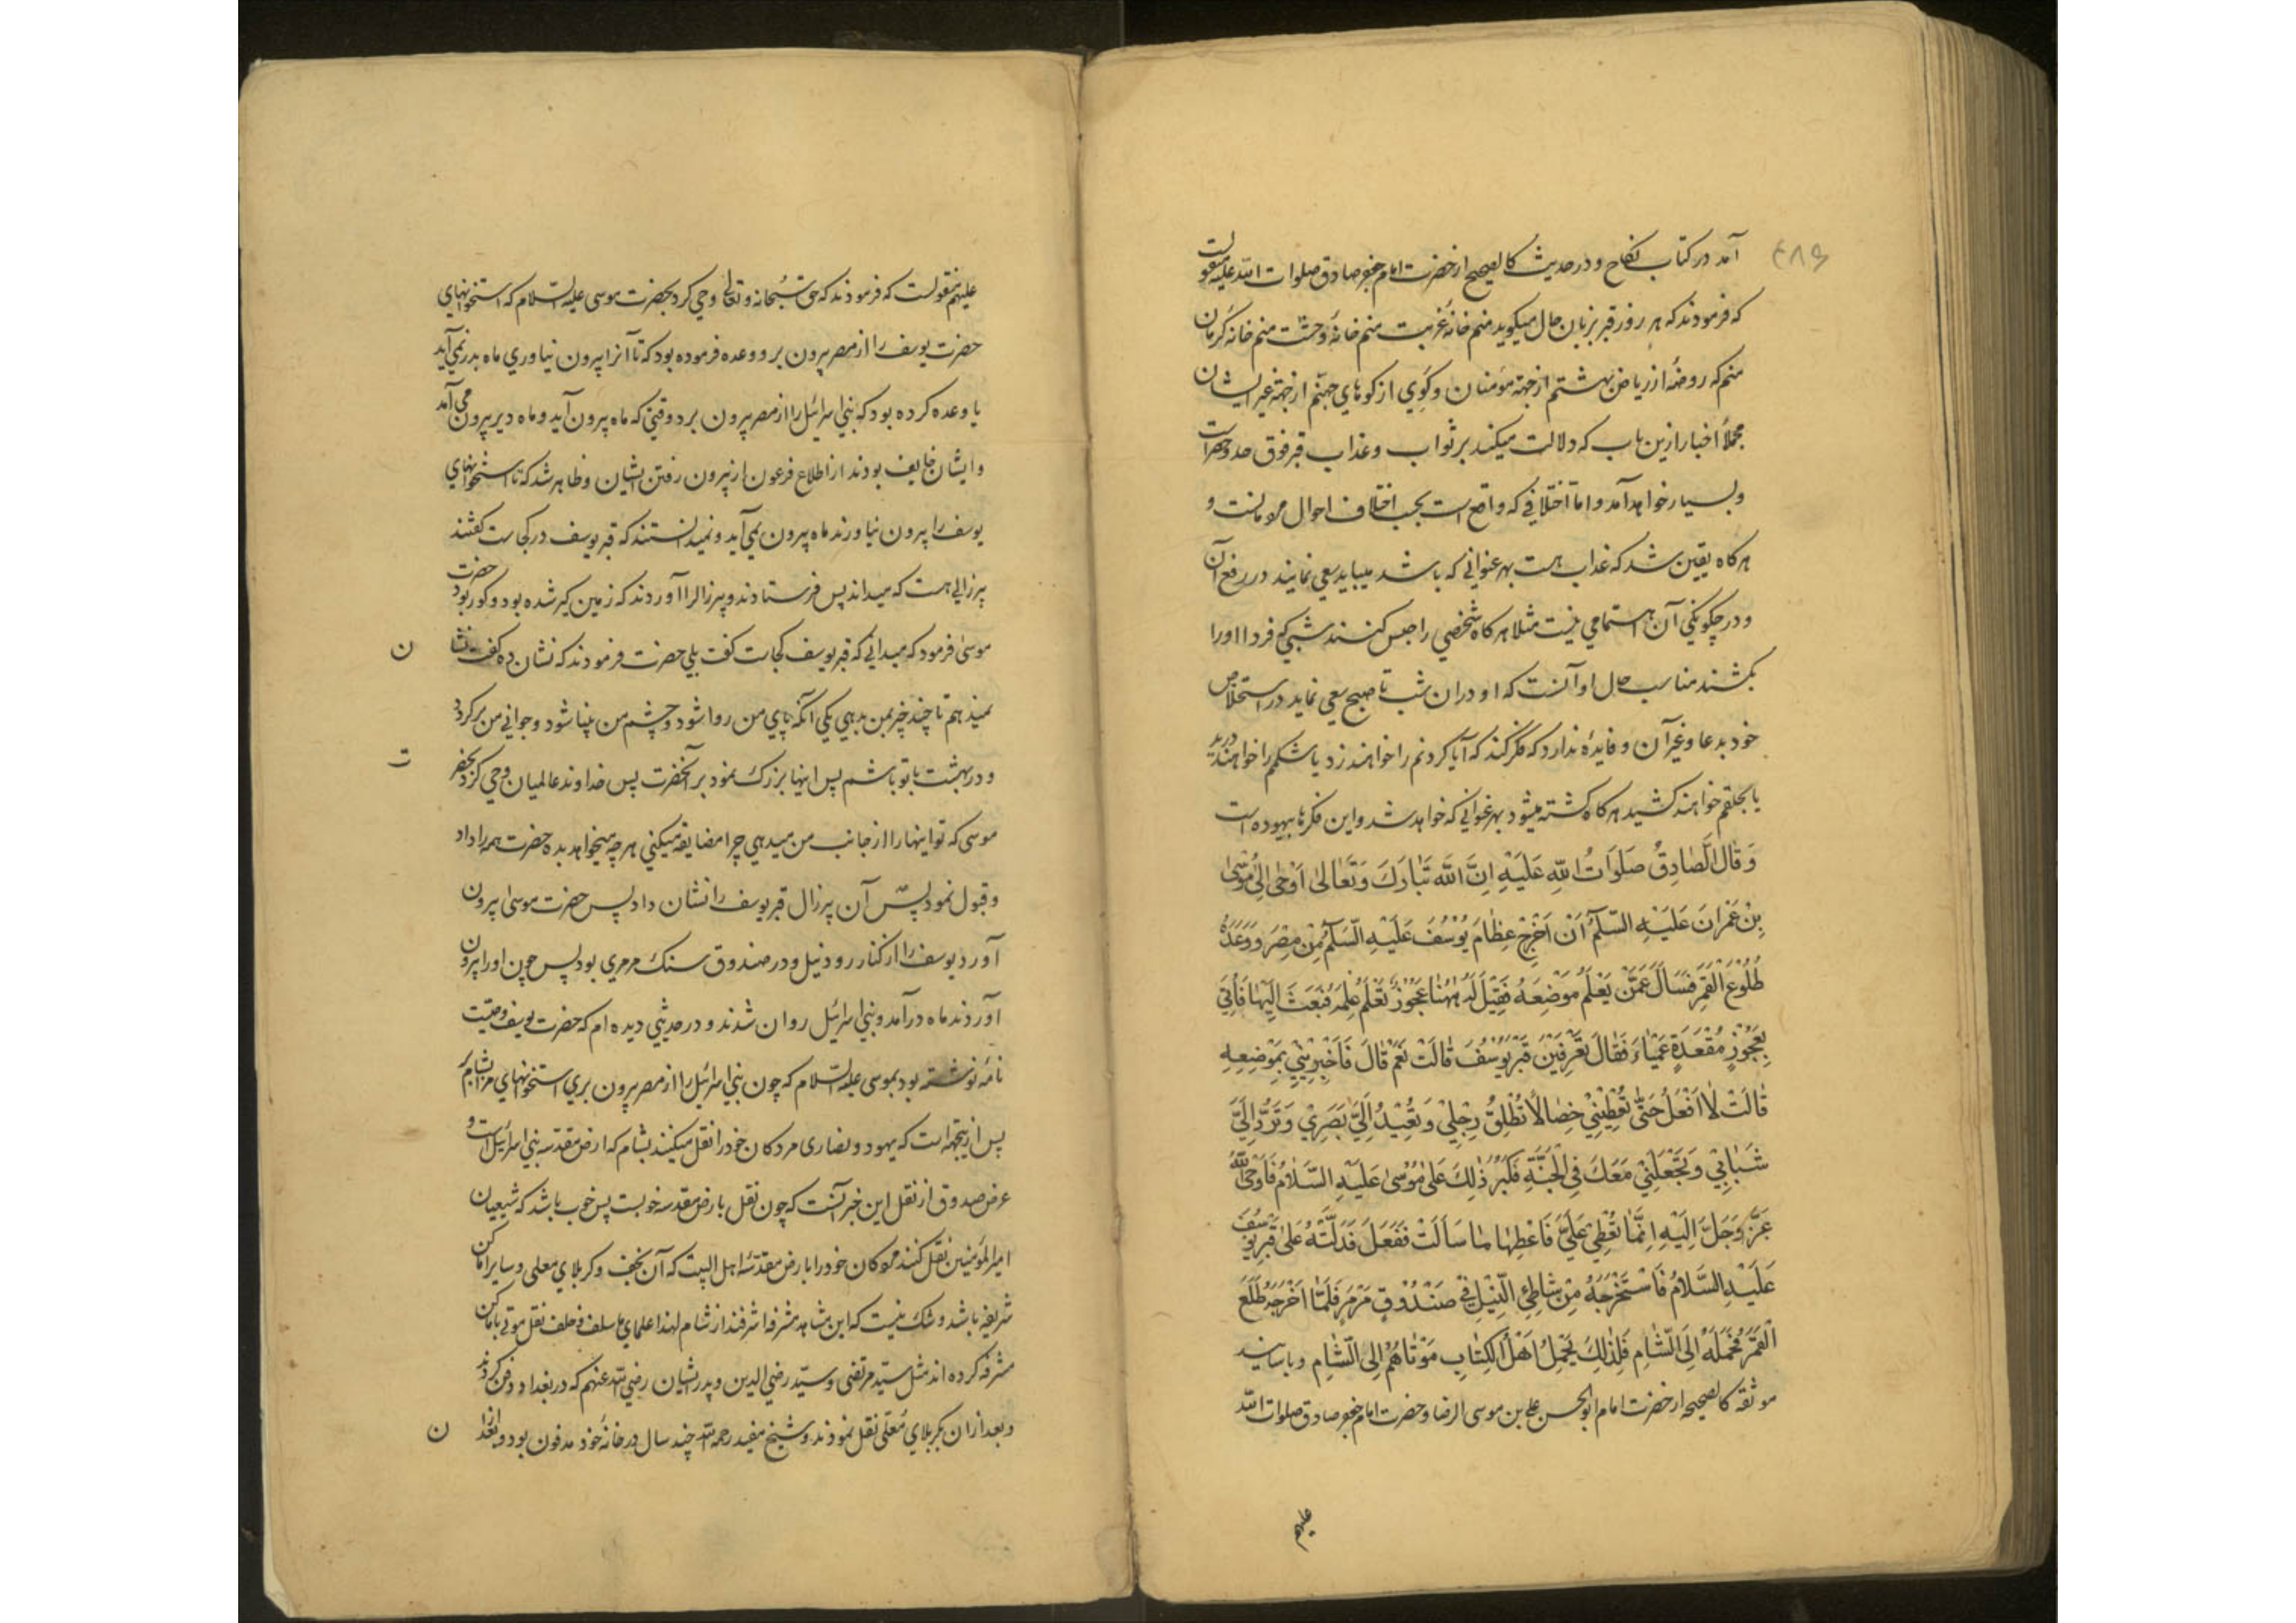 آمد در کتاب نکاح و در حدیث کالصحیح از حضرت امام جعفر صادق صلوات الله علیه منقولست
که فرمودند که هر روز قبر بزبان حال میکوید منم خانهٔ غربت منم خانهٔ وحشت منم خانهٔ کرمان
منم که روضهٔ از ریاض بهشتم از جهة مؤمنان و کَوِی از کوهای جهنّم از جهة غیر ایشان
مجملاً اخبار ازین باب که دلالت میکند بر ثواب و عذاب قبر فوق حد و حصر است
و بسیار خواهد آمد و اما اختلافی که واقع است بحسب اختلاف احوال مردمانست و
هرکاه یقین شد که عذاب هست بهر عنوانی که باشد میباید سعی نمایند در رفع آن
و در چکونکی آن اهتمامی نیست مثلا هرکاه شخصی را حبس کنند شبی که فردا اورا
بکشند مناسب حال او آنست که او در ان شب تا صبح سعی نماید در استخلاص
خود بدعا و غیر آن و فایدهٔ ندارد که فکر کند که آیا کردنم را خواهند زد یا شکمم را خواهند درید
یا بحلقم خواهند کشید هرکاه کشته میشود بهر عنوانی که خواهد شد و این فکرها بیهوده است
وَقَالَ الصَّادِقُ صَلَوَاتُ اللهِ عَلَیْهِ اِنَّ اللّهَ تَبَارَكَ وَتَعَالیٰ اَوْحیٰ اِلیٰ مُوْسیٰ
بِنْ عِمْرانَ عَلَیْهِ السّلَمُ اَنْ اَخْرِجْ عِظَامَ یُوْسُفَ عَلَیْهِ السَّلَمُ مِنْ مِصْرَ وَوَعَدَهُ
طُلُوْعَ الْقَمَرِ فَسَاَلَ عَمَّنْ یَعْلَمُ مَوْضِعَهُ فَقِیْلَ لَهُ هٰهُنَا عَجُوْزٌ تَعْلَمُ عِلْمَهُ فَبَعَثَ اِلَیْهَا فَاُتِیَ
بِعَجُوْزٍ مُقْعَدَةٍ عَمْیَاءَ فَقَالَ تَعْرِفِیْنَ قَبْرَ یُوْسُفَ قَالَتْ نَعَمْ قَالَ فَاَخْبِرِیْنِیْ بِمَوْضِعِهِ
قَالَتْ لاٰ اَفْعَلُ حَتّیٰ تُعْطِیَنِیْ خِصَالاً تُطْلِقُ رِجْلِیْ وَتُعِیْدُ اِلَیَّ بَصَرِیْ وَتَرُدُّ اِلَیَّ
شَبَابِیْ وَتَجْعَلَنِیْ مَعَكَ فِی الْجَنَّةِ فَکَبُرَ ذٰلِكَ عَلیٰ مُوْسیٰ عَلَیْهِ السَّلَامُ فَاَوْحَی اللّهُ
عَزَّ وَجَلَّ اِلَیْهِ اِنَّمَا تُعْطِیْ عَلَیَّ فَاَعْطِهَا مَا سَاَلَتْ فَفَعَلَ فَدَلَّتْهُ عَلیٰ قَبْرِ یُوْسُفَ
عَلَیْهِ السَّلَامُ فَاسْتَخْرَجَهُ مِنْ شَاطِئِ النِّیْلِ فِیْ صَنْدُوْقٍ مَرْمَرٍ فَلَمَّا اَخْرَجَهُ طَلَعَ
الْقَمَرُ فَحَمَلَهُ اِلَی الشَّامِ فَلِذٰلِكَ یَحْمِلُ اَهْلُ الْکِتَابِ مَوْتَاهُمْ اِلَی الشَّامِ و باسانید
موثقه کالصحیحه از حضرت امام ابوالحسن علی بن موسی الرضا و حضرت امام جعفر صادق صلوات الله
علیهم
علیهم منقولست که فرمودند که حق سُبحانه و تعالی وحی کرد بحضرت موسی علیه السّلام که استخوانهای
حضرت یوسف را از مصر بیرون بر و وعده فرموده بود که تا آنرا بیرون نیاوری ماه بدر نمی آید
یا وعده کرده بود که بنی اسرائیل را از مصر بیرون برد وقتی که ماه بیرون آید و ماه دیر بیرون می آمد
و ایشان خایف بودند از اطلاع فرعون از بیرون رفتن ایشان و ظاهر شد که تا استخوانهای
یوسف را بیرون نیاورند ماه بیرون نمی آید و نمیدانستند که قبر یوسف در کجاست کفتند
پیرزالی هست که میداند پس فرستادند و پیرزال را آوردند که زمین کیر شده بود و کور بود حضرت
موسیٰ فرمود که میدانی که قبر یوسف کجاست کفت بلی حضرت فرمودند که نشان ده کفت نشا ن
نمیدهم تا چند چیز بمن بدهی یکی آنکه پای من روا شود و چشم من بینا شود و جوانی من برکردد
و در بهشت با تو باشم پس اینها بزرك نمود بر آنحضرت پس خداوند عالمیان وحی کرد بحضر ت
موسی که تو اینها را از جانب من میدهی چرا مضایقه میکنی هرچه میخواهد بده حضرت همه را داد
و قبول نمود پس آن پیرزال قبر یوسف را نشان داد پس حضرت موسیٰ بیرون
آورد یوسف را از کنار رود نیل و در صندوق سنك مرمری بود پس چون اورا بیرون
آوردند ماه درآمد و بنی اسرائیل روان شدند و در حدیثی دیده ام که حضرت یوسف وصیّت
نامهٔ نوشته بود بموسی علیه السّلام که چون بنی اسرائیل را از مصر بیرون بری استخوانهای مرا بشام بَر
پس از ینجهة است که یهود و نصاری مردکان خود را نقل میکنند بشام که ارض مقدسه بنی اسرائیل است و
غرض صدوق از نقل این خبر آنست که چون نقل بارض مقدسه خوبست پس خوب باشد که شیعیان
امیرالمؤمنین نقل کنند مردکان خود را بارض مقدسهٔ اهل البیت که آن نجف و کربلای معلی و سایر اماکن
شریفه باشد و شك نیست که این مشاهد مشرفه اشرفند از شام لهذا علمای ما سلف و خلف نقل موتی باماکن
مشرفه کرده اند مثل سیّد مرتضی و سیّد رضی الدین و پدر ایشان رضی الله عنهم که در بغداد دفن کردند
و بعد از ان بکربلای مُعلّی نقل نمودند و شیخ مفید رحمه الله چند سال در خانهٔ خود مدفون بود و بعد ازا ن